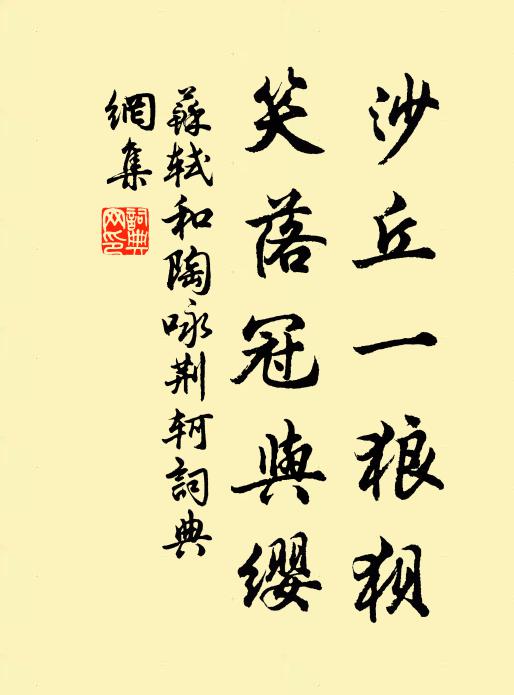 沙丘一狼狽
笑落冠與纓
蘇軾和陶咏荆軻詞典
網集
詞典網印